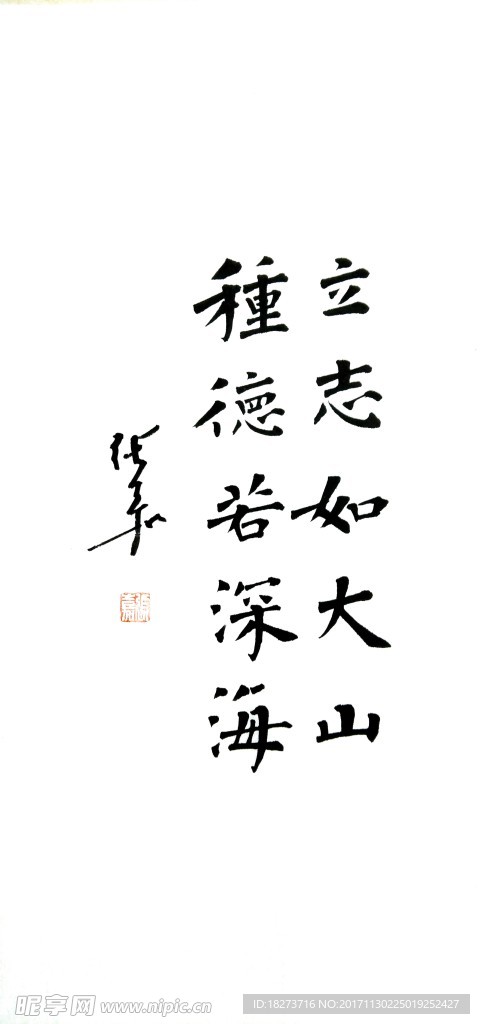 立志如大山
種德若深海
昵享网 www.nipic.cn
ID:18273716 NO:20171130225019252427